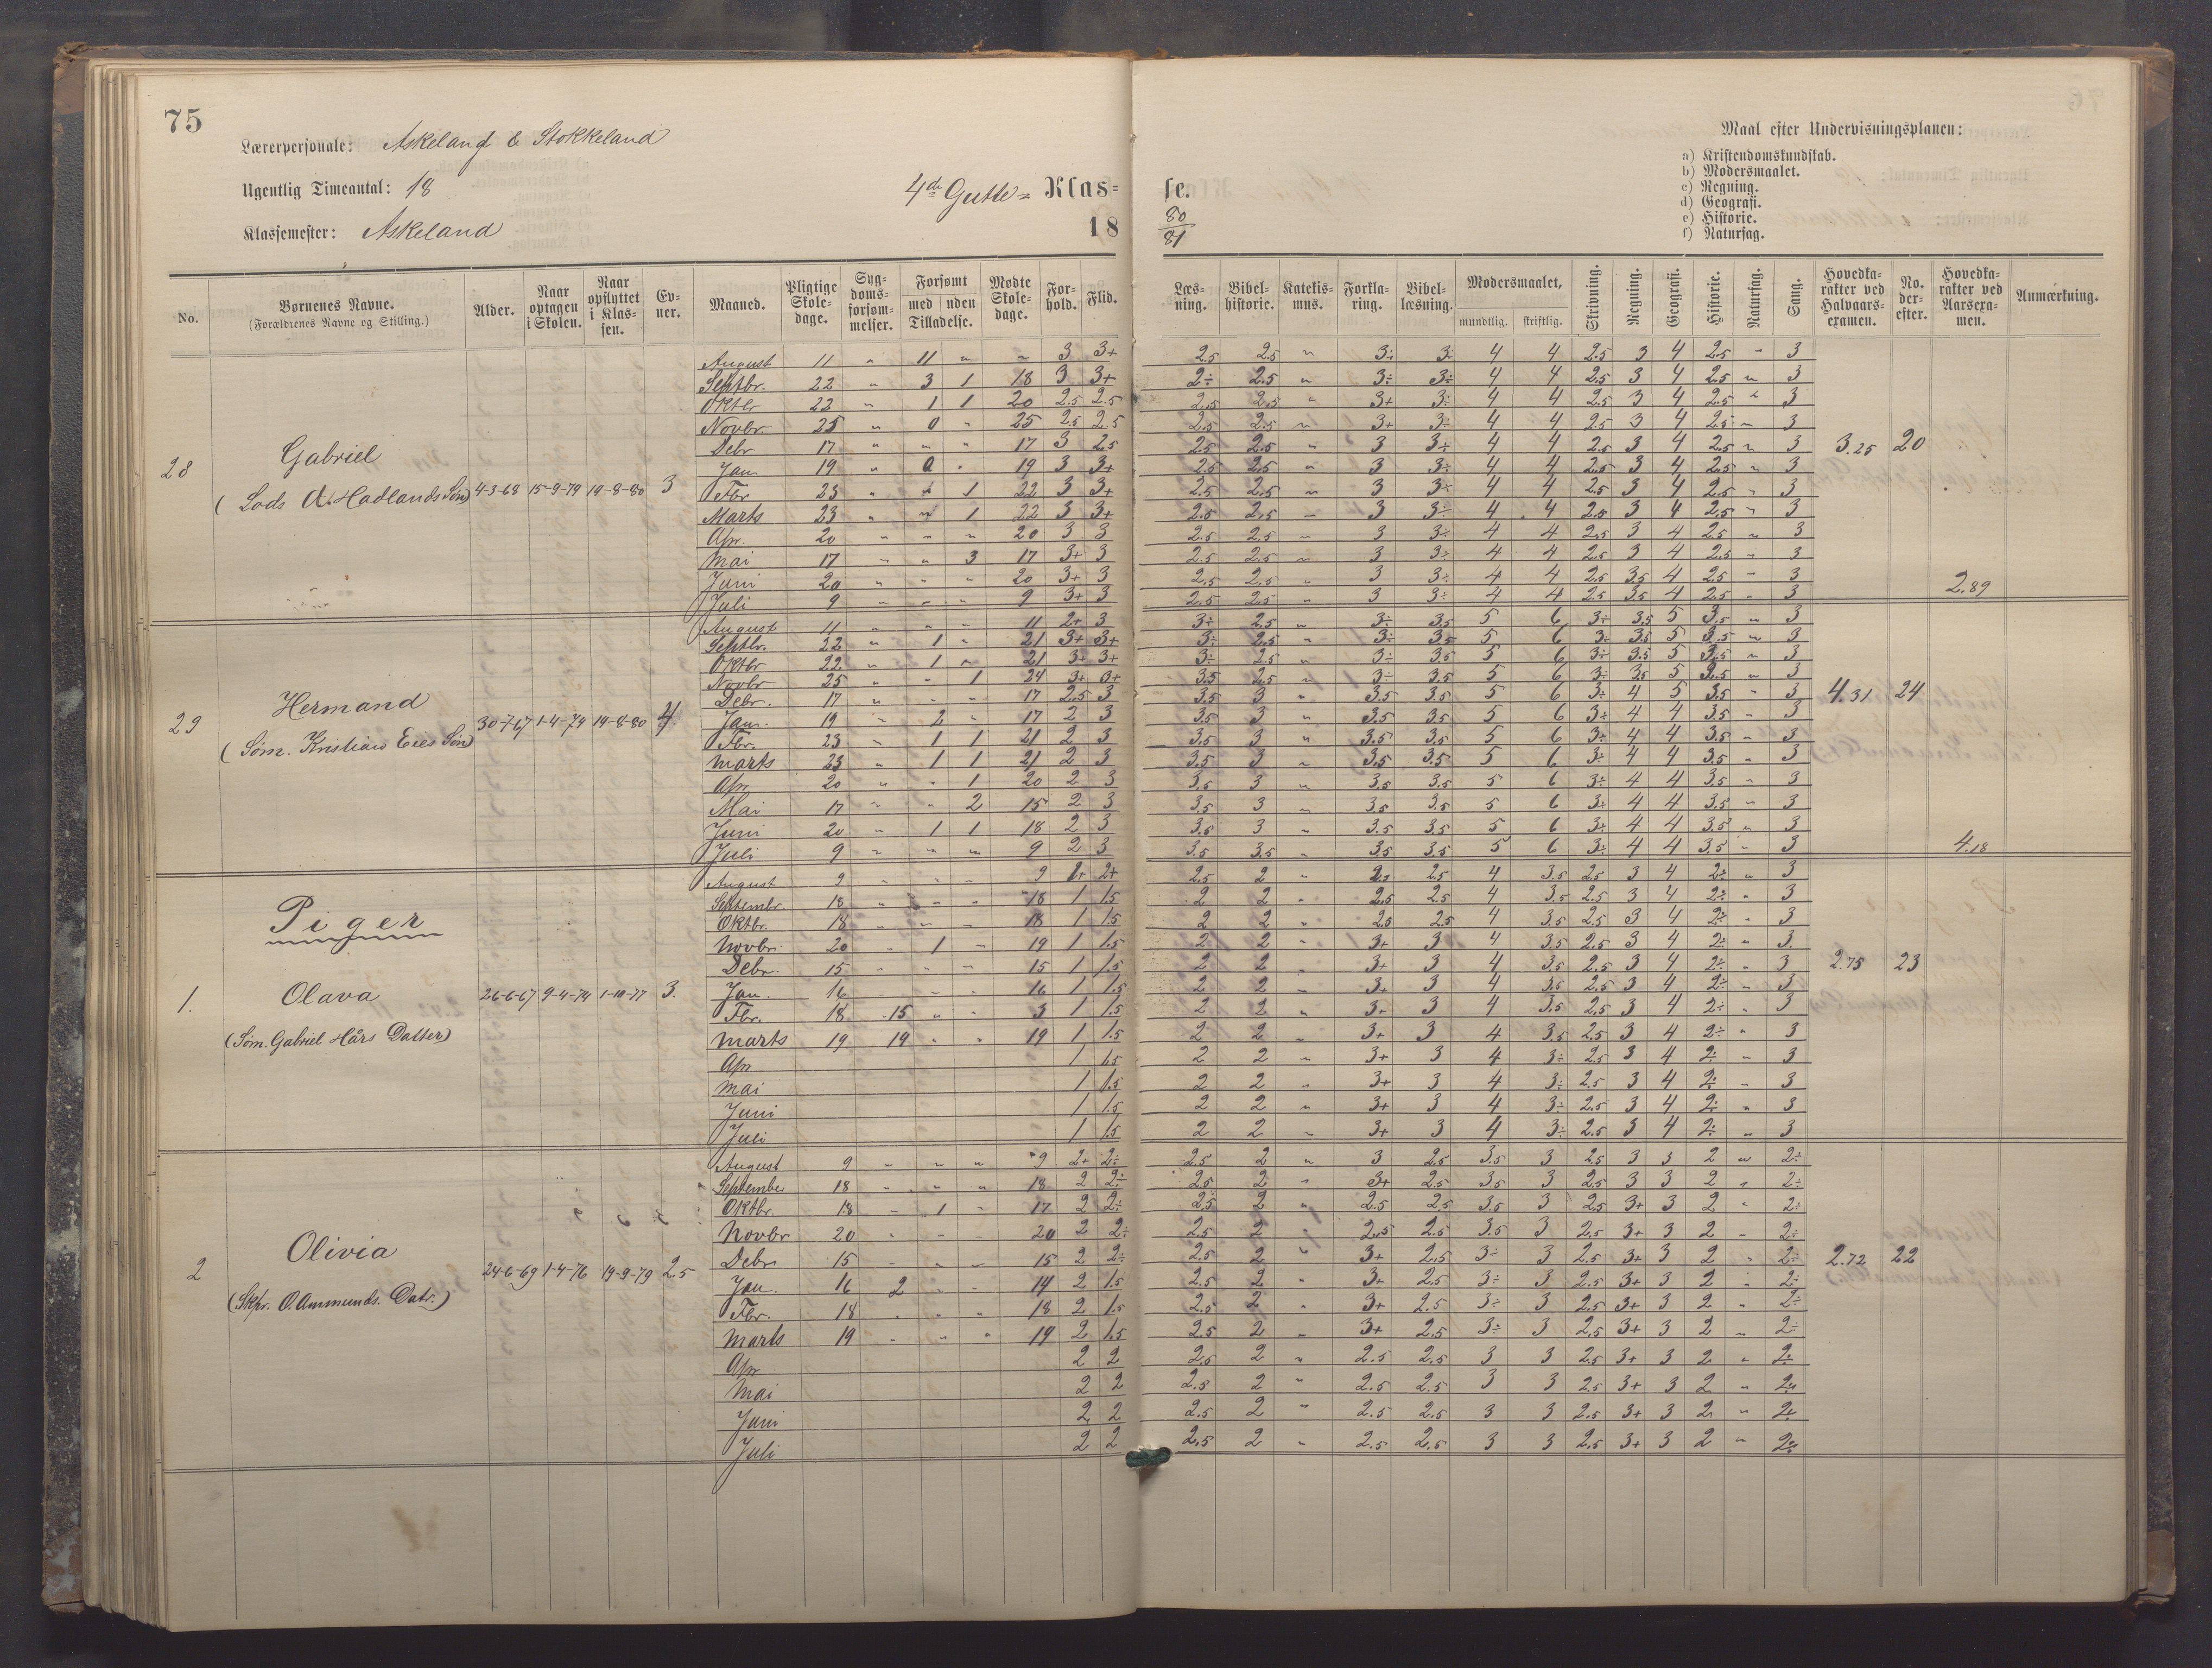 75
Lærerpersonale: Askeland & Stokkeland
Ugentlig Timeantal: 18
Klassemester: Askeland
4de Gutte= Klas=se.
18 80/81
Maal efter Undervisningsplanen:
a) Kristendomskundskab.
b) Modersmaalet.
c) Regning.
d) Geografi.
e) Historie.
f) Naturfag.
No. | Børnenes Navne. (Forældrenes Navne og Stilling.) | Alder. | Naar optagen i Skolen. | Naar opflyttet i Klassen. | Evner. | Maaned. | Pligtige Skoledage. | Sygdomsforsømmelser. | Forsømt med / uden Tilladelse. | Mødte Skoledage. | Forhold. | Flid. | Læsning. | Bibelhistorie. | Katekismus. | Forklaring. | Bibellæsning. | Modersmaalet, mundtlig. / skriftlig. | Skrivning. | Regning. | Geografi. | Historie. | Naturfag. | Sang. | Hovedkarakter ved Halvaarsexamen. | No. derefter. | Hovedkarakter ved Aarsexamen. | Anmærkning.
28 Gabriel
(Lods A. Hadlands Søn) 4-3-68 15-9-79 19-8-80 3
August 11 " 11 " " 3 3+ 2.5 2.5 " 3÷ 3÷ 4 4 2.5 3 4 2.5 " 3
Septbr. 22 " 3 1 18 3 3+ 2÷ 2.5 " 3÷ 3÷ 4 4 2.5 3 4 2.5 " 3
Oktbr 22 " 1 1 20 2.5 2.5 2.5 2.5 " 3+ 3÷ 4 4 2.5 3 4 2.5 " 3
Novbr. 25 " 0 " 25 2.5 2.5 2.5 2.5 " 3+ 3÷ 4 4 2.5 3 4 2.5 " 3
Debr 17 " " " 17 3 2.5 2.5 2.5 " 3 3÷ 4 4 2.5 3 4 2.5 " 3 3.25 20
Jan 19 " 0 " 19 3 3+ 2.5 2.5 " 3 3÷ 4 4 2.5 3 4 2.5 " 3
Fbr 23 " " 1 22 3 3+ 2.5 2.5 " 3 3÷ 4 4 2.5 3 4 2.5 " 3
Marts 23 " " 1 22 3 3+ 2.5 2.5 " 3 3÷ 4 4 2.5 3 4 2.5 " 3
Apr. 20 " " " 20 3 3 2.5 2.5 " 3 3÷ 4 4 2.5 3 4 2.5 " 3
Mai 17 " " 3 17 3+ 3 2.5 2.5 " 3 3÷ 4 4 2.5 3 4 2.5 " 3
Juni 20 " " " 20 3+ 3 2.5 2.5 " 3 3÷ 4 4 2.5 3.5 4 2.5 " 3
Juli 9 " " " 9 3+ 3 2.5 2.5 " 3 3÷ 4 4 2.5 3.5 4 2.5 " 3 2.89
29 Hermand
(Søm. Kristian Eies Søn) 30-7-67 1-4-74 19-8-80 4
August 11 " " " 11 2+ 3 3÷ 2.5 " 3÷ 3.5 5 6 3÷ 3.5 5 3.5 " 3
Septbr. 22 " 1 " 21 3+ 3+ 3÷ 2.5 " 3÷ 3.5 5 6 3÷ 3.5 5 3.5 " 3
Oktbr 22 " 1 " 21 3+ 3+ 3÷ 2.5 " 3÷ 3.5 5 6 3÷ 3.5 5 3.5 " 3
Novbr 25 " " 1 24 3+ 3+ 3.5 2.5 " 3÷ 3.5 5 6 3÷ 3.5 5 3.5 " 3
Debr. 17 " " " 17 2.5 3 3.5 3 " 3.5 3.5 5 6 3÷ 4 5 3.5 " 3 4.31 24
Jan. 19 " 2 " 17 2 3 3.5 3 " 3.5 3.5 5 6 3÷ 4 4 3.5 " 3
Fbr. 23 " 1 1 21 2 3 3.5 3 " 3.5 3.5 5 6 3÷ 4 4 3.5 " 3
Marts 23 " 1 1 21 2 3 3.5 3 " 3.5 3.5 5 6 3÷ 4 4 3.5 " 3
Apr 20 " " 1 20 2 3 3.5 3 " 3.5 3.5 5 6 3÷ 4 4 3.5 " 3
Mai 17 " " 2 15 2 3 3.5 3 " 3.5 3.5 5 6 3÷ 4 4 3.5 " 3
Juni 20 " 1 1 18 2 3 3.5 3 " 3.5 3.5 5 6 3÷ 4 4 3.5 " 3
Juli 9 " " " 9 2 3 3.5 3.5 " 3.5 3.5 5 6 3÷ 4 4 3.5 " 3 4.18
Piger
1. Olava
(Søm. Gabriel Hårs Datter) 26-6-67 9-4-74 1-10-77 3.
August 9 " " " 9 1+ 2+ 2.5 2 " 2.5 2.5 4 3.5 2.5 3 4 2÷ " 3
Septembr. 18 " " " 18 1 1.5 2 2 " 2.5 2.5 4 3.5 2.5 3 4 2÷ " 3
Oktbr. 18 " " " 18 1 1.5 2 2 " 2.5 2.5 4 3.5 2.5 3 4 2÷ " 3
Novbr. 20 " 1 " 19 1 1.5 2 2 " 3+ 3 4 3.5 2.5 3 4 2÷ " 3.
Debr. 15 " " " 15 1 1.5 2 2 " 3+ 3 4 3.5 2.5 3 4 2÷ " 3 2.75 23
Jan. 16 " " " 16 1 1.5 2 2 " 3+ 3 4 3.5 2.5 3 4 2÷ " 3
Fbr. 18 15 " " 3 1 1.5 2 2 " 3+ 3 4 3.5 2.5 3 4 2÷ " 3
Marts 19 19 " " 19 1 1.5 2 2 " 3+ 3 4 3.5 2.5 3 4 2÷ " 3
Apr 1 1.5 2 2 " 3+ 3 4 3÷ 2.5 3 4 2÷ " 3
Mai 1 1.5 2 2 " 3+ 3 4 3÷ 2.5 3 4 2÷ " 3
Juni 1 1.5 2 2 " 3+ 3 4 3÷ 2.5 3 4 2÷ " 3
Juli 1 1.5 2 2 " 3+ 3 4 3÷ 2.5 3 4 2÷ " 3
2 Olivia
(Skpr. O. Ammunds. Datr.) 24-6-69 1-4-76 19-9-79 2.5
August 9 " " " 9 2+ 2÷ 2.5 2 " 3 2.5 3.5 3 2.5 3 3 2 " 2÷
September 18 " " " 18 2 2÷ 2.5 2 " 3+ 2.5 3.5 3 2.5 3 3 2 " 2÷
Oktbr. 18 " 1 " 17 2 2÷ 2.5 2 " 2.5 2.5 3.5 3 2.5 3+ 3 2 " 2÷
Novbr 20 " " " 20 2 2÷ 2.5 2 " 2.5 2.5 3.5 3 2.5 3+ 3 2 " 2÷
Debr 15 " " " 15 2 2÷ 2.5 2 " 3+ 2.5 3÷ 3 2.5 3+ 3 2 " 2÷ 2.72 22
Jan. 16 2 " " 14 2 1.5 2.5 2 " 3+ 2.5 3÷ 3 2.5 3+ 3 2 " 2÷
Fbr. 18 " " " 18 2 1.5 2.5 2 " 3+ 2.5 3÷ 3 2.5 3+ 3 2 " 2÷
Marts 19 " " " 19 2 1.5 2.5 2 " 3+ 2.5 3÷ 3 2.5 3+ 3 2 " 2÷
Apr 2 2 2.5 2 " 2.5 2.5 3 3 2.5 3+ 3 2 " 2÷
Mai 2 2 2.5 2 " 2.5 2.5 3 3 2.5 3+ 3 2 " 2÷
Juni 2 2 2.5 2 " 2.5 2.5 3 3 2.5 3+ 3 2 " 2÷
Juli 2 2 2.5 2 " 2.5 2.5 3 3 2.5 3+ 3 2 " 2÷